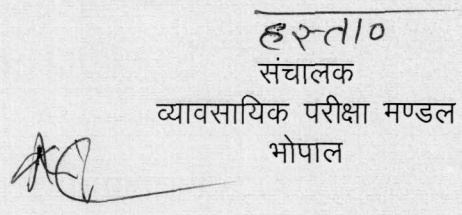 हस्ता०
संचालक
व्यावसायिक परीक्षा मण्डल
भोपाल